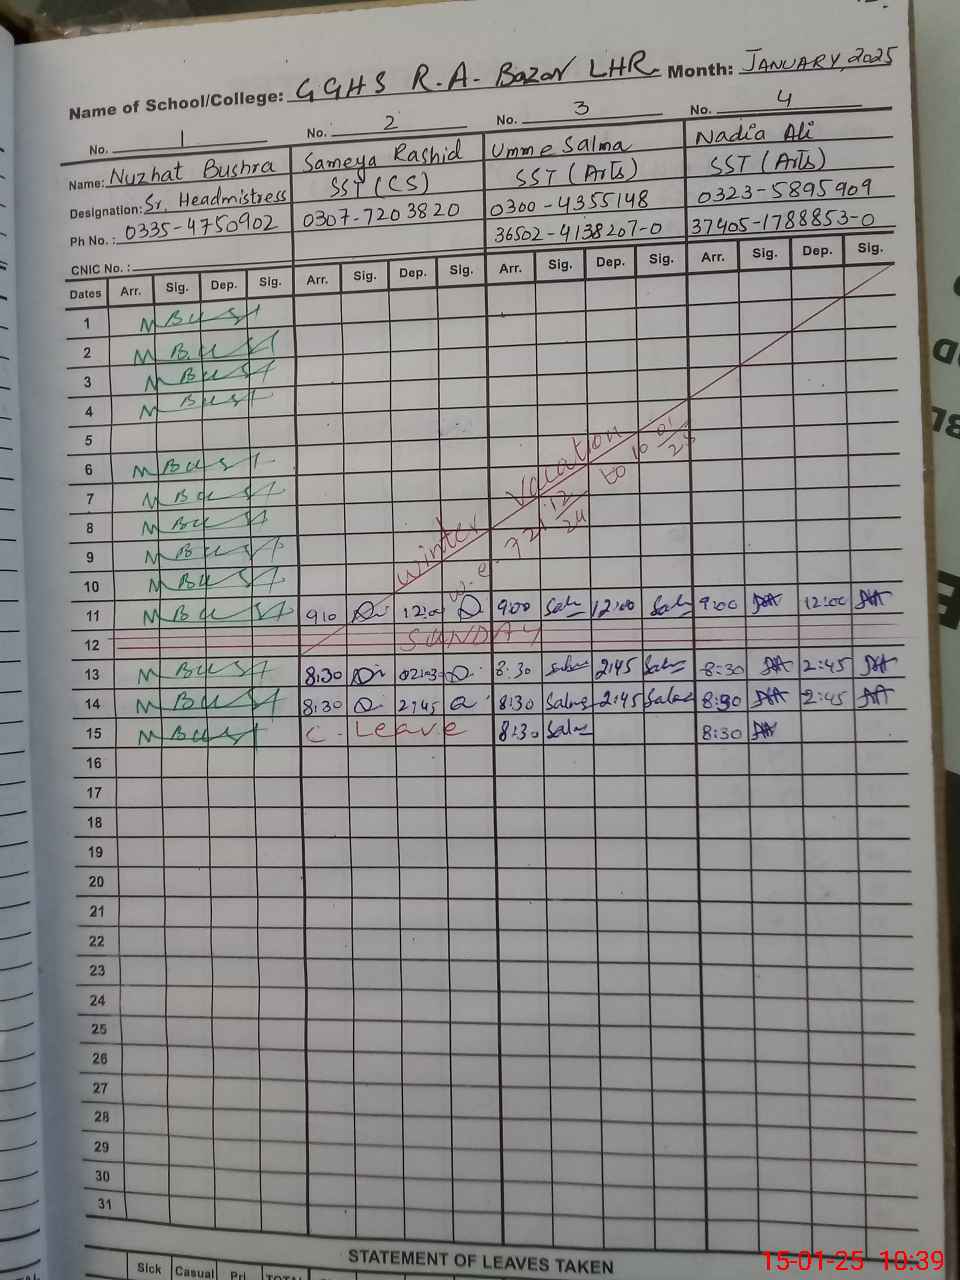 Name of School/College: GGHS R.A. Bazar LHR. Month: JANUARY, 2025
No. 1 No. 2 No. 3 No. 4
Name: Nuzhat Bushra Sameya Rashid Umme Salma Nadia Ali
Designation: Sr. Headmistress SST (CS) SST (Arts) SST (Arts)
Ph No.: 0335-4750902 0307-7203820 0300-4355148 0323-5895909
CNIC No.: 36502-4138207-0 37405-1788853-0
Dates Arr. Sig. Dep. Sig. Arr. Sig. Dep. Sig. Arr. Sig. Dep. Sig. Arr. Sig. Dep. Sig.
1
2
3
4
5
6
7
8
9
10
winter vacation
w.e.f 21 12/24 to 10 01/25
11 9:00 Sal 12:00 Sal 9:00 12:00
12 SUNDAY
13 8:30 8:30 Salma 2:45 Salma 8:30 2:45
14 8:30 2:45 8:30 Salma 2:45 Salma 8:30 2:45
15 C. Leave 8:30 Salma 8:30
16
17
18
19
20
21
22
23
24
25
26
27
28
29
30
31
STATEMENT OF LEAVES TAKEN
Sick Casual Pri. TOTAL
15-01-25 10:39